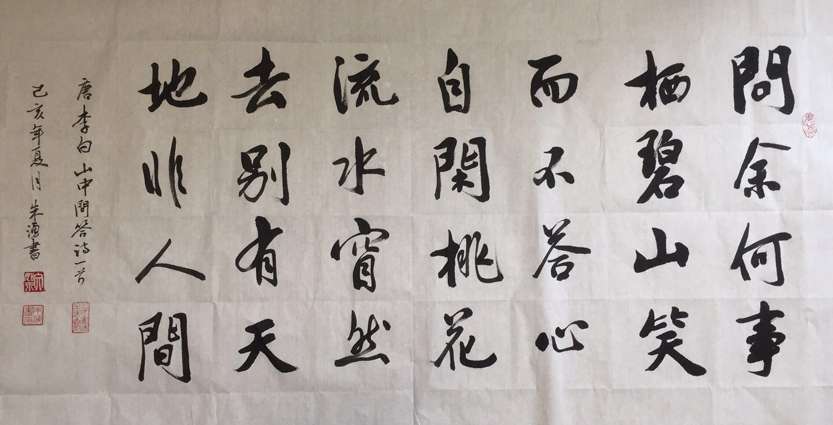 問余何事
栖碧山笑
而不答心
自閑桃花
流水窅然
去別有天
地非人間
唐李白山中問答诗一首
己亥年夏月朱涌書